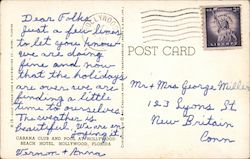 Dear Folks
Just a few lines
to let you know
we are doing
fine and now
that the holidays
are over we are
finding a little
time to ourselves
The weather is
beautiful. We are
enjoying it.
Vernon & Anna
CABANA CLUB AND POOL AT HOLLYWOOD
BEACH HOTEL, HOLLYWOOD, FLORIDA
POST CARD
Mr & Mrs George Miller
123 Lyons St
New Britain
Conn